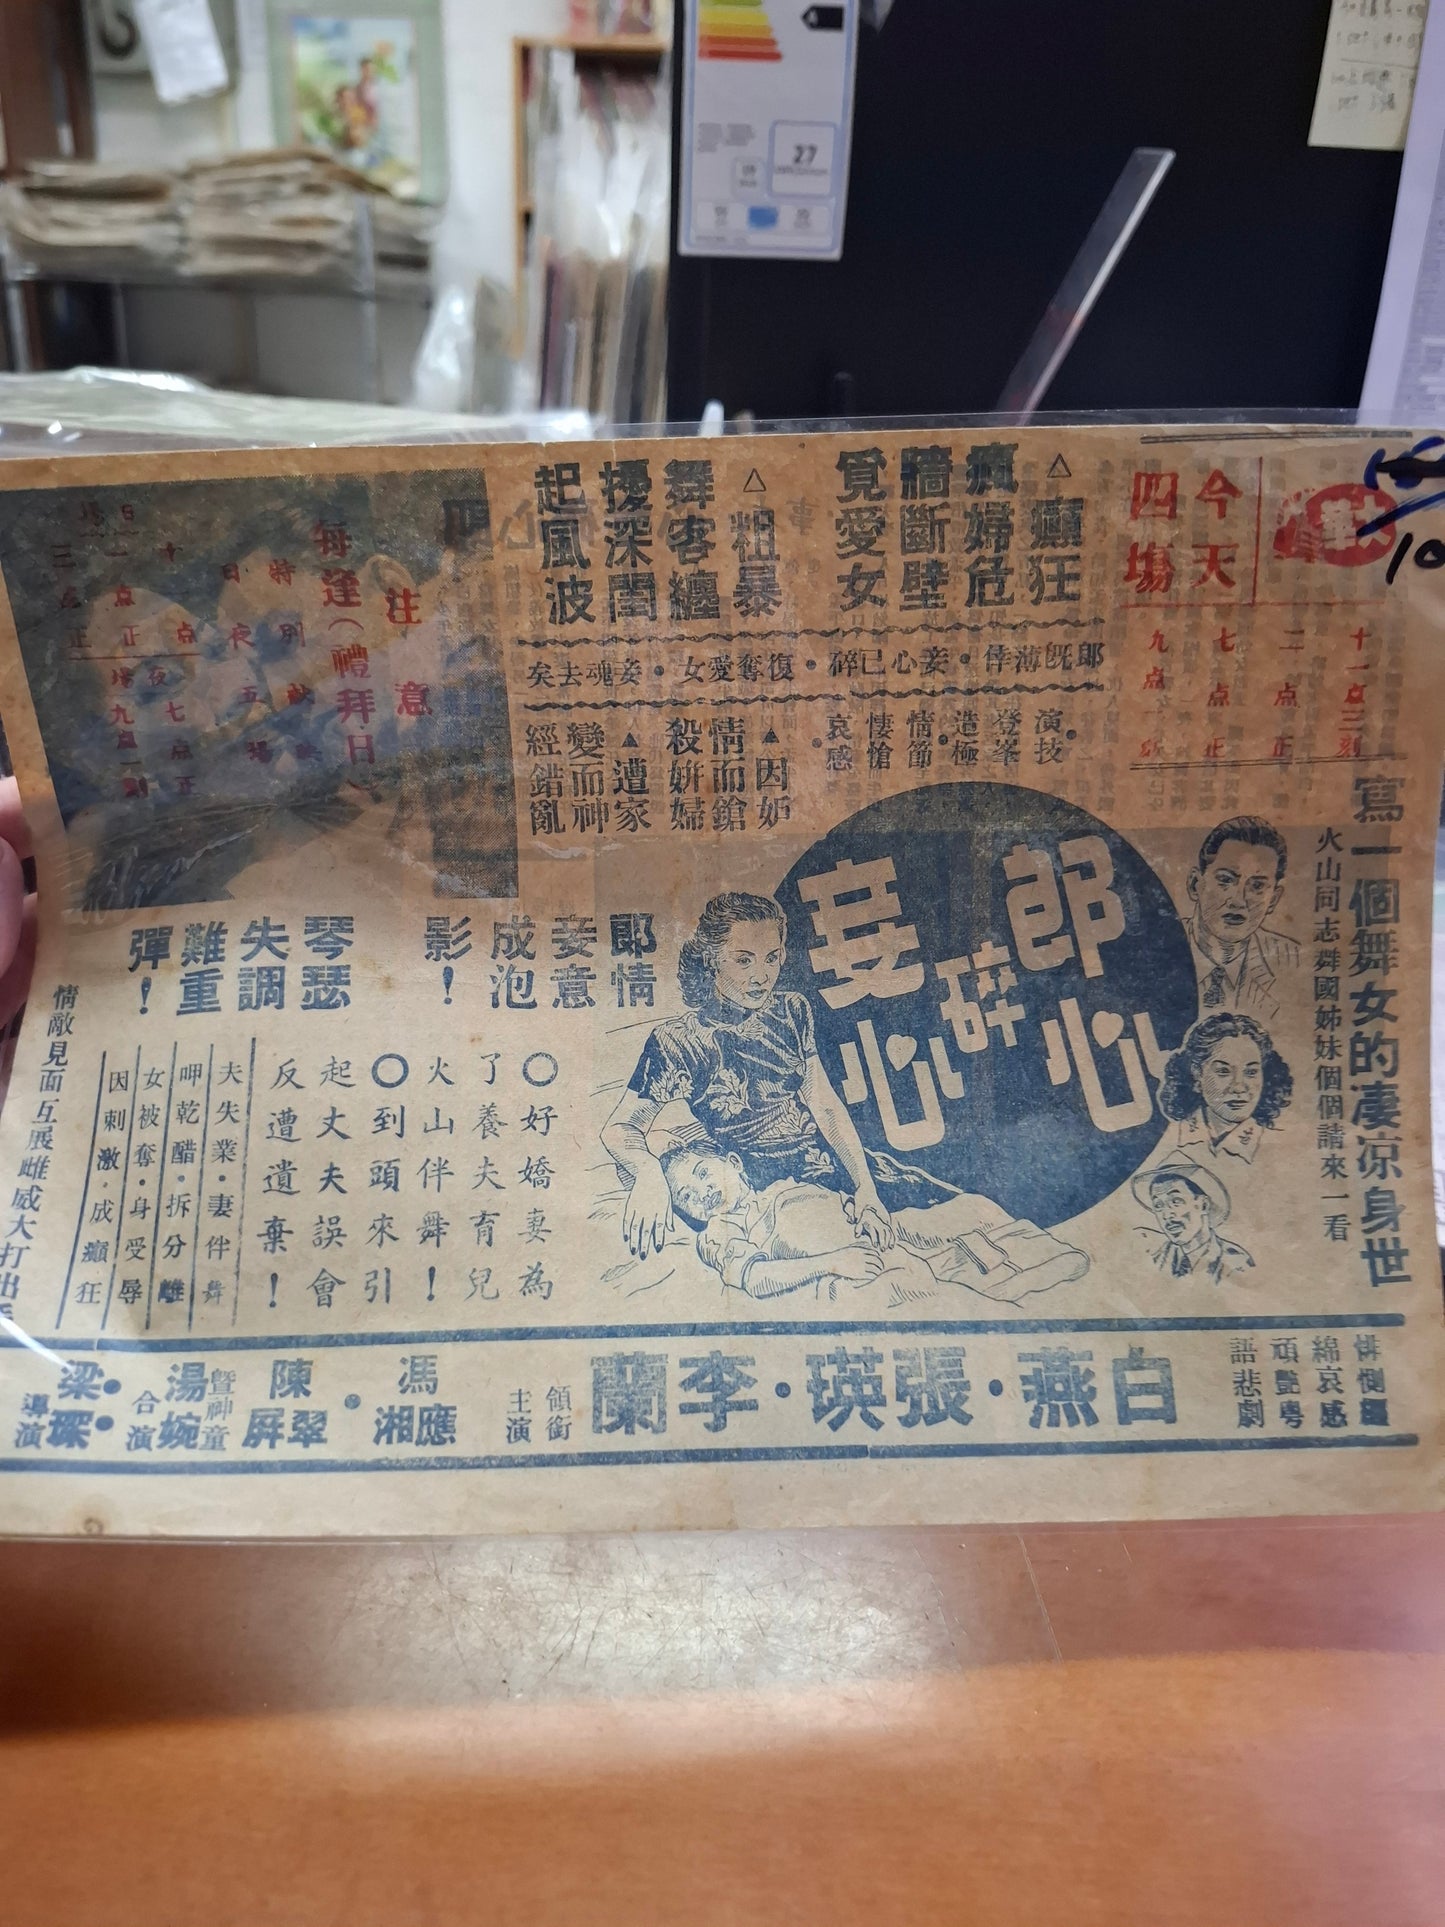 今天
四場
十一点三刻
二点正
七点正
九点
△癲狂
瘋婦危
牆斷壁
覓愛女
△粗暴
舞客纏
擾深閨
起風波
郎既薄倖・妾心已碎・復奪愛女・妾魂去矣
演技・
登峯
造極・
情節
悽愴・
哀感
▲因妒
情而鎗
殺姘婦
▲遭家
變而神
經錯亂
注意
每逢(禮拜・日)
特別献映
日夜五場
寫一個舞女的凄凉身世
火山同志舞國姊妹個個請來一看
郎心碎妾心
郎情
妾意
成泡
影!
琴瑟
失調
難重
彈!
○好嬌妻為
了養夫育兒
火山伴舞!
○到頭來引
起丈夫誤會
反遭遺棄!
夫失業・妻伴舞
呷乾醋・拆分離
女被奪・身受辱
因刺激・成癲狂
情敵見面互展雌威大打出
綿哀感
頑艷粵
語悲劇
白燕・張瑛・李蘭
領銜
主演
馮應湘・
陳翠屏
暨神童
湯婉
合演
梁琛
導演
27
10